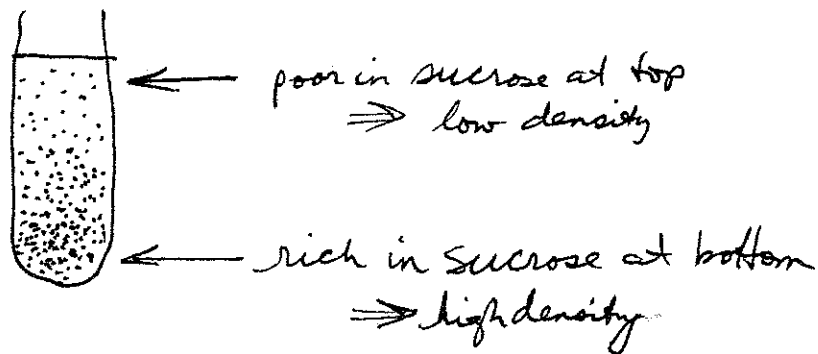 poor in sucrose at top
⇒ low density
rich in sucrose at bottom
⇒ high density